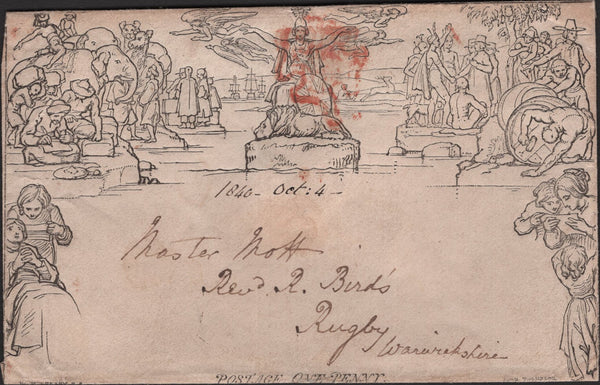 1840 - Oct: 4 -
Master Mott
Revd. R. Bird's
Rugby
Warwickshire
POSTAGE ONE PENNY.